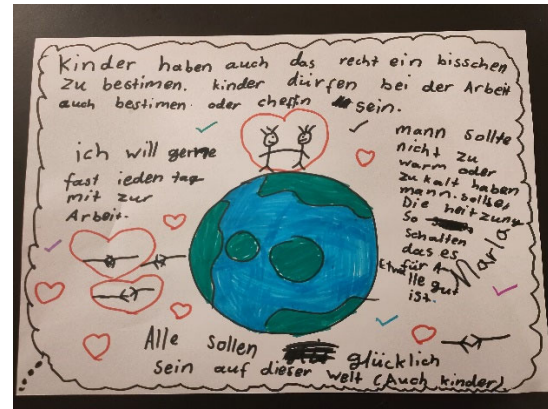 Kinder haben auch das recht ein bisschen
zu bestimen. kinder dürfen bei der Arbeit
auch bestimen oder cheffin sein.
ich will gerne
fast ieden tag
mit zur
Arbeit.
mann sollte
nicht zu
warm oder
zu kalt haben
mann. sollte
Die heitzung
so
schalten
das es
für A
lle gut
ist.
Marla
Alle sollen glücklich
sein auf dieser welt (Auch kinder)